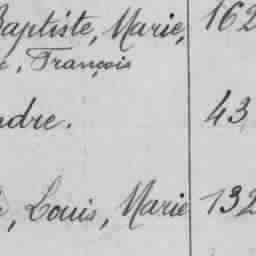 Baptiste, Marie, 162
, François
ndre. 43
, Louis, Marie 132